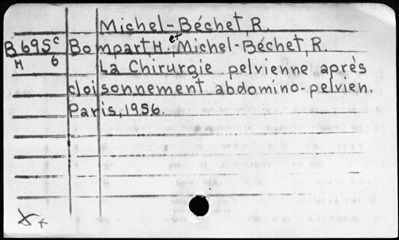 Michel-Béchet, R.
B695c Bompart, H. et Michel-Béchet, R.
H 6 La Chirurgie pelvienne après
cloisonnement abdomino-pelvien.
Paris, 1956.